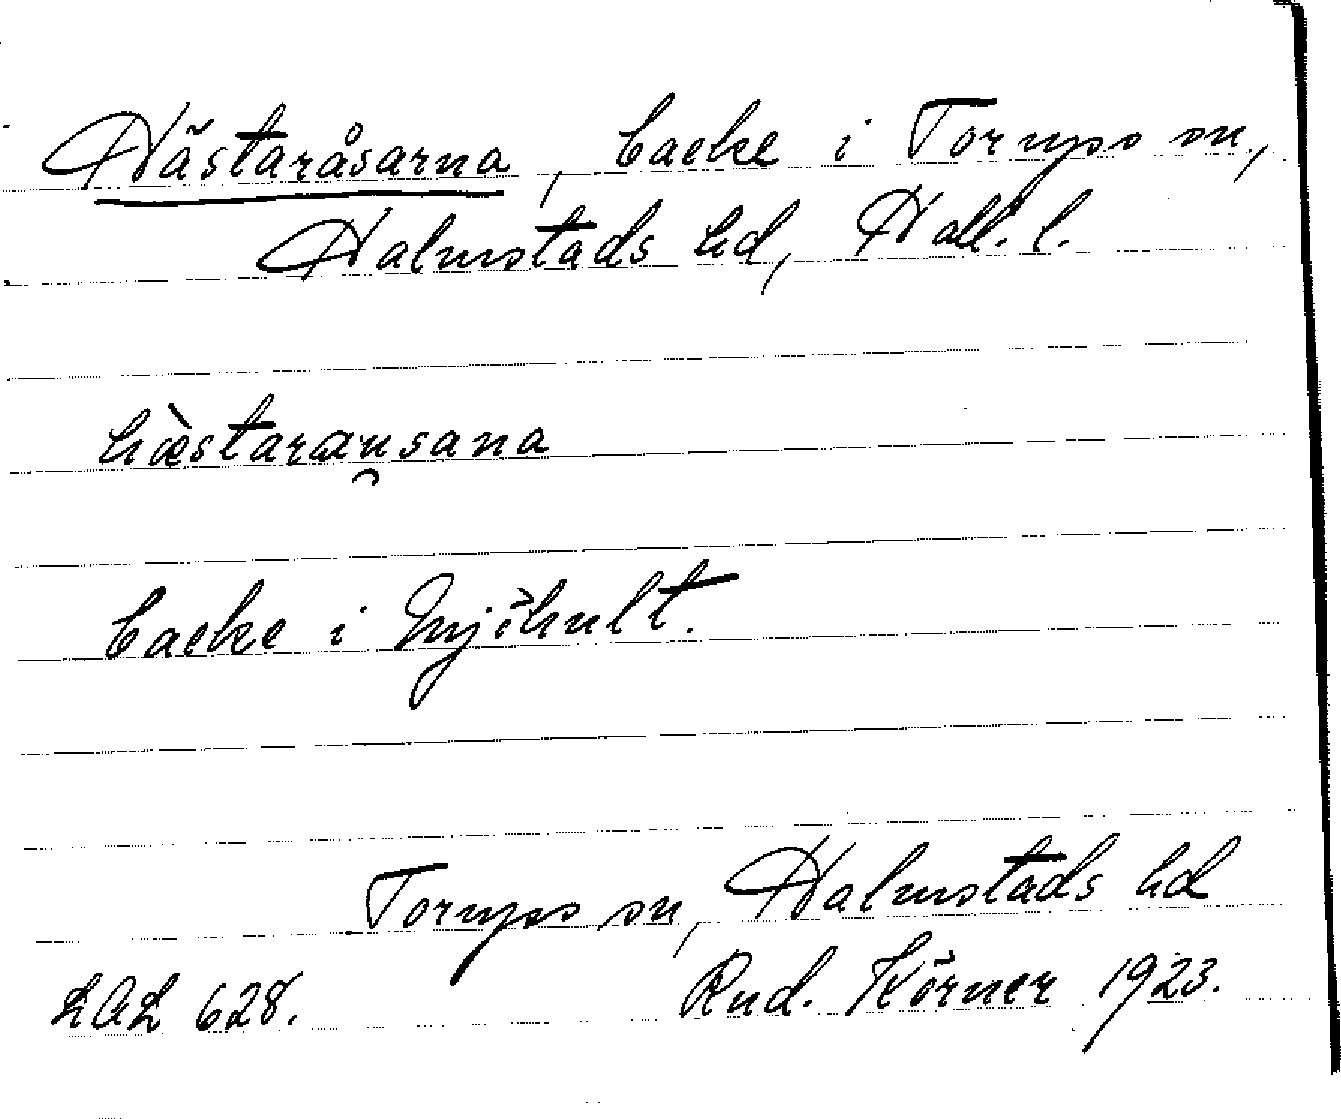 Hästaråsarna, backe i Tornyps sn,
Halmstads hd, Hall. l.
hæ̀starau̯sana
backe i Mjöhult.
Tornyps sn, Halmstads hd
LAL 628. Rud. Körner 1923.